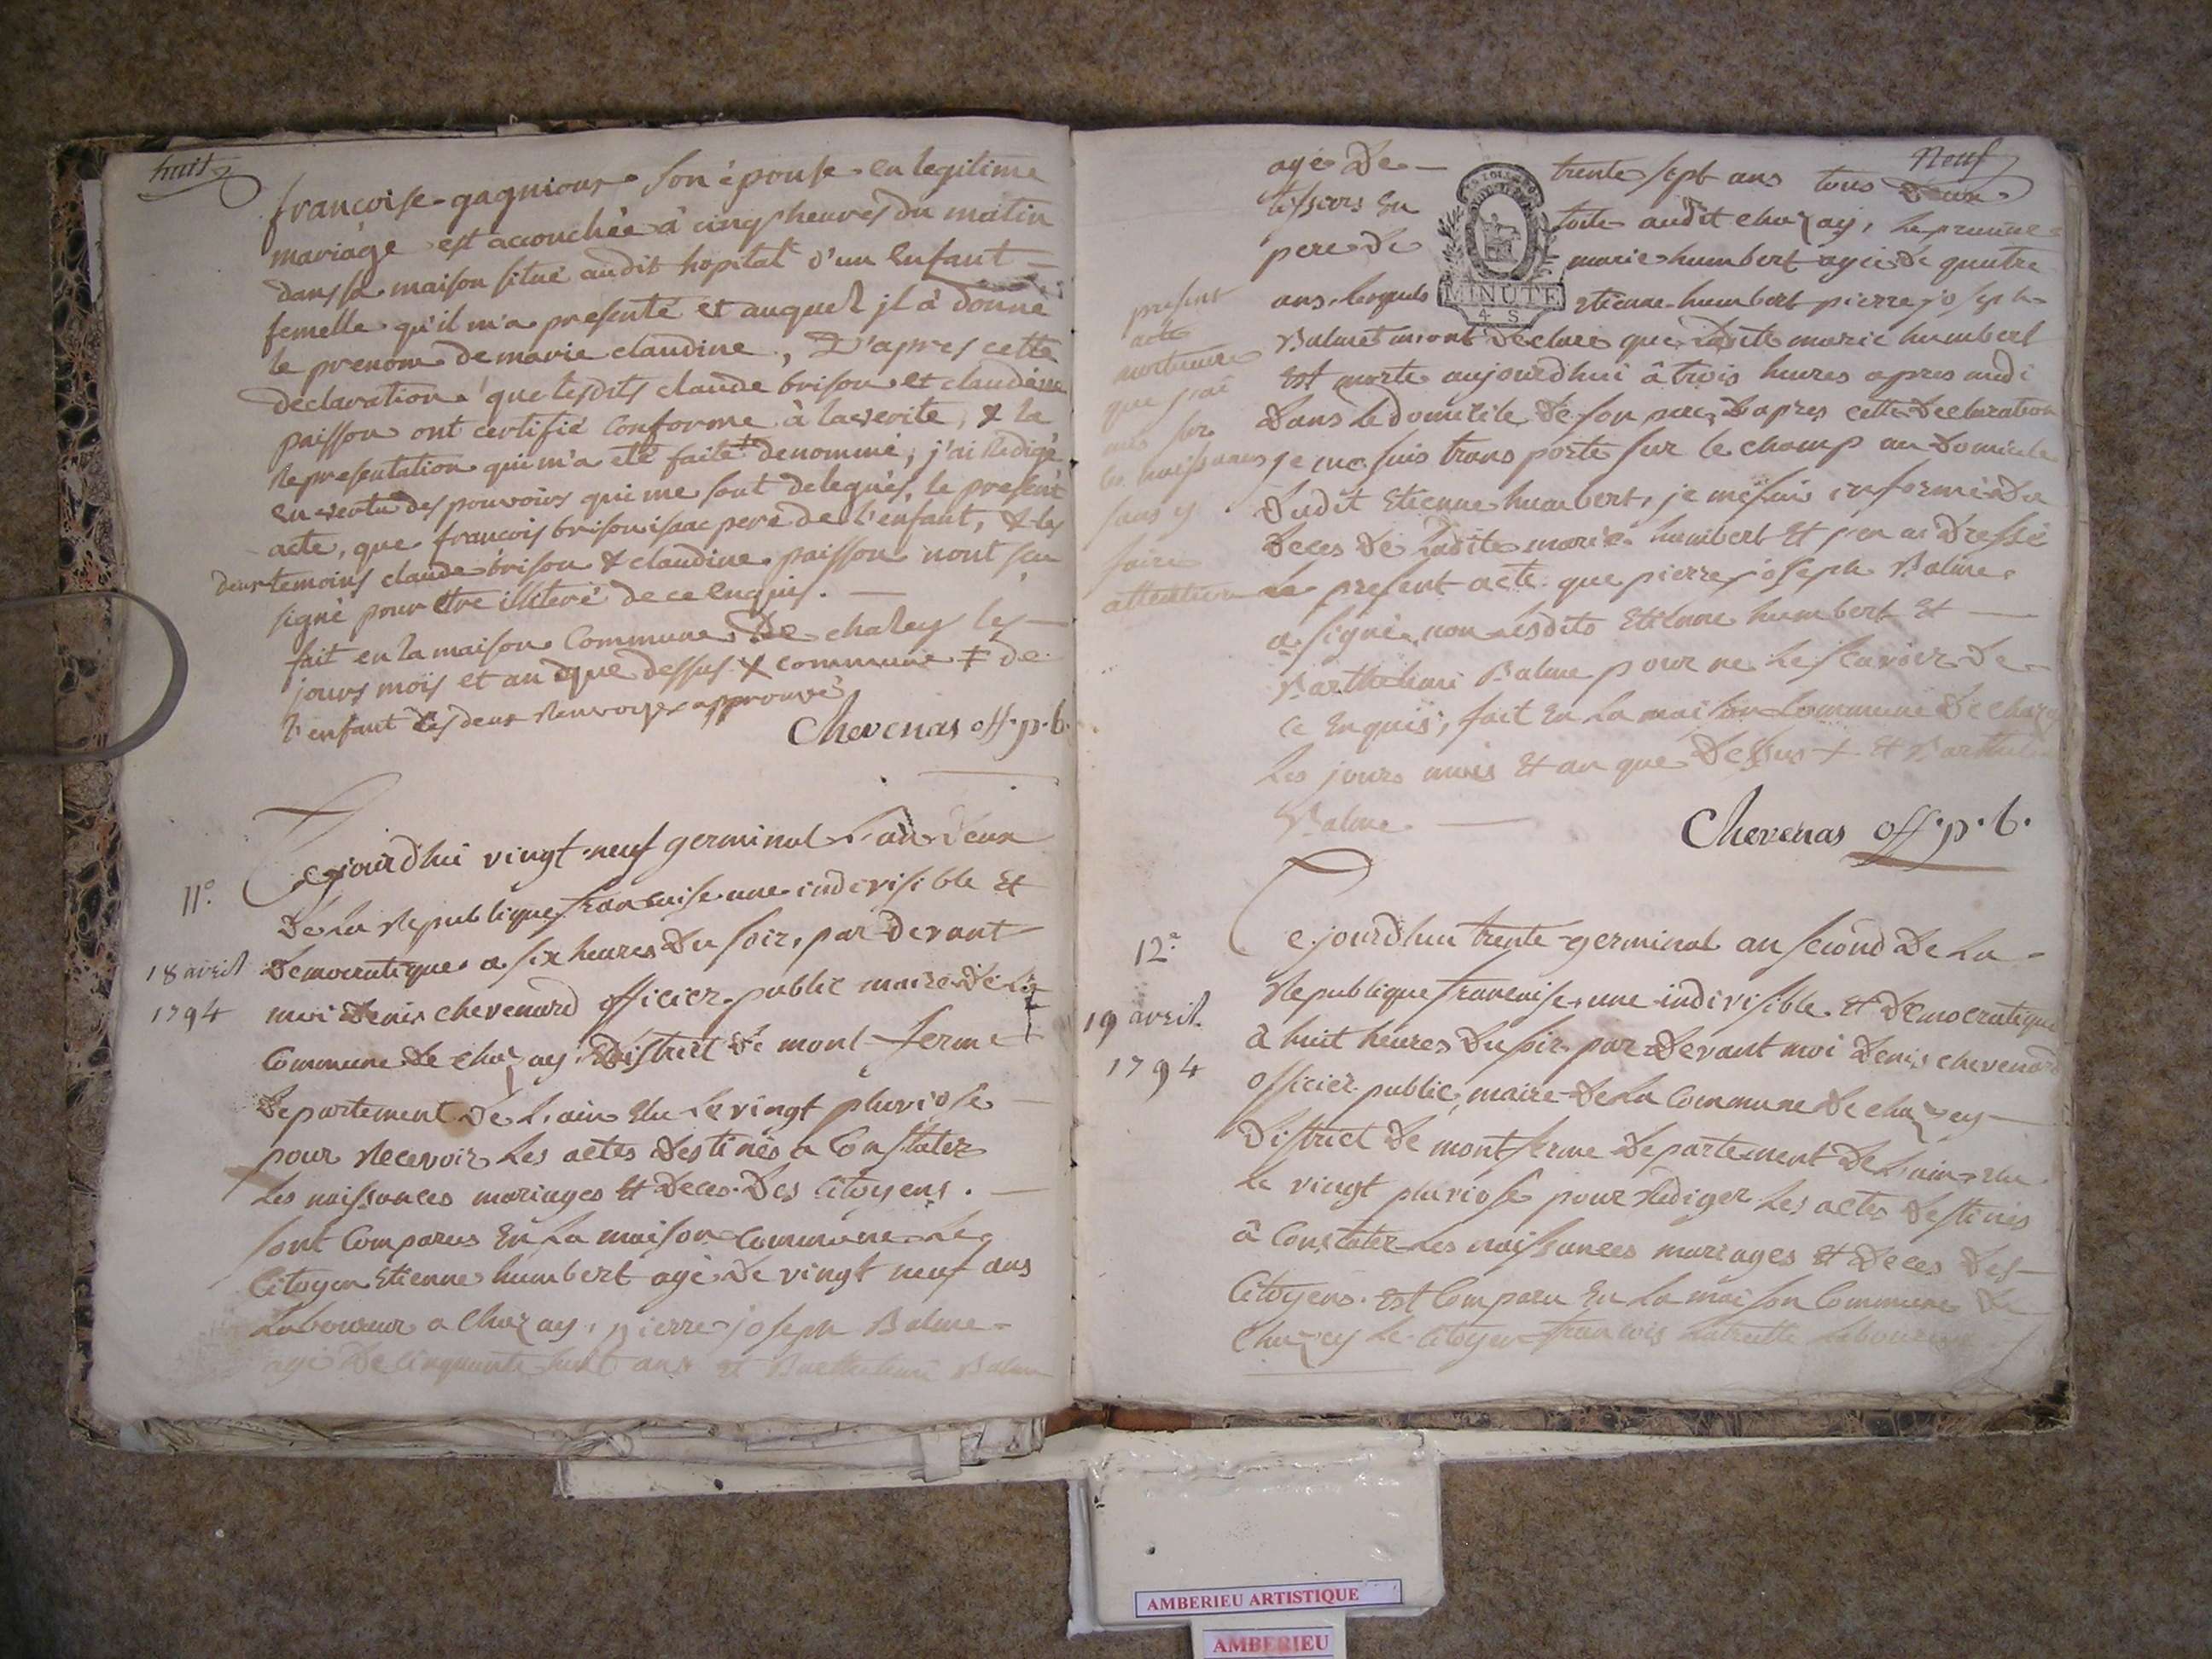 huit
francoise gagnioux son épouse en legitime
mariage est accouchée à cinq heures du matin
dans sa maison situé audit hopital d'un enfant
femelle qu'il m'a presenté et auquel il à donné
le prenom de marie claudine, D'apres cette
declaration que lesdits claude brison et claudine
paisson ont certifié conforme à la verite, & la
representation qui m'a eté faite denommé, j'ai redigé
en vertu des pouvoirs qui me sont delegués, le present
acte, que francois brison isaac pere de l'enfant, & les
deux temoins claude brison & claudine paisson n'ont scu
signé pour etre illiteré de ce enquis.
fait en la maison commune De chazey les
jours mois et an que dessus x commune ‡ de
l'enfant les deux renvoys approuvé
Chevenas off. p. b.
11°
18 avril
1794
Cejourdhui vingt neuf germinal L'an deux
De La republique francaise une indivisible Et
Democratique a six heures Du soir, par devant
moi Denis chevenard officier public maire De La
Commune De chazay District De mont ferme
Departement De L'ain Elu Le vingt pluviose
pour recevoir Les actes destinés a Constater
Les naissances mariages Et Deces Des Citoyens.
sont Comparus En La maison commune Le
Citoyen Etienne humbert agé De vingt neuf ans
Laboureur a Chazay, pierre joseph Balme
agé De cinquante huit ans et Barthelemi Balme
Neuf
agé De trente sept ans tous Deux
tissiers En toile audit chazay, Le premier
pere De marie humbert agée De quatre
ans, lesquels Etienne humbert pierre joseph
MINUTE
4 S.
Balme m'ont Declaré que Ladite marie humbert
Est morte aujourdhui à trois heures apres midi
Dans Le domicile De son pere, D'apres cette Declaration
je me suis transporté sur le champ au Domicile
Dudit Etienne humbert, je me suis informé Du
Deces De Ladite marie humbert Et j'en ai Dressé
Le present acte que pierre joseph Balme
a signé, non lesdits Etienne humbert Et
Barthelemi Balme pour ne Le scavoir De
ce Enquis, fait En La maison Commune De chazey
Les jours mois Et an que Dessus + Et Barthelemi
Balme
Chevenas off. p. b.
present
acte
mortuaire
que j'rai
mis sur
les naissances
sans y
faire
attention
12°
19 avril
1794
Cejourdhui trente germinal an second De La
Republique francaise, une indivisible. Et Democratique
à huit heures Du soir par devant moi Denis chevenard
officier public, maire De La Commune De chazey
District De montferme Departement De L'ain, Elu
Le vingt pluviose pour rediger Les actes Destinés
à Constater Les naissances mariages Et Deces Des
Citoyens. Est Comparu En La maison Commune De
Chazey Le Citoyen francois Laboureur
AMBERIEU ARTISTIQUE
AMBERIEU